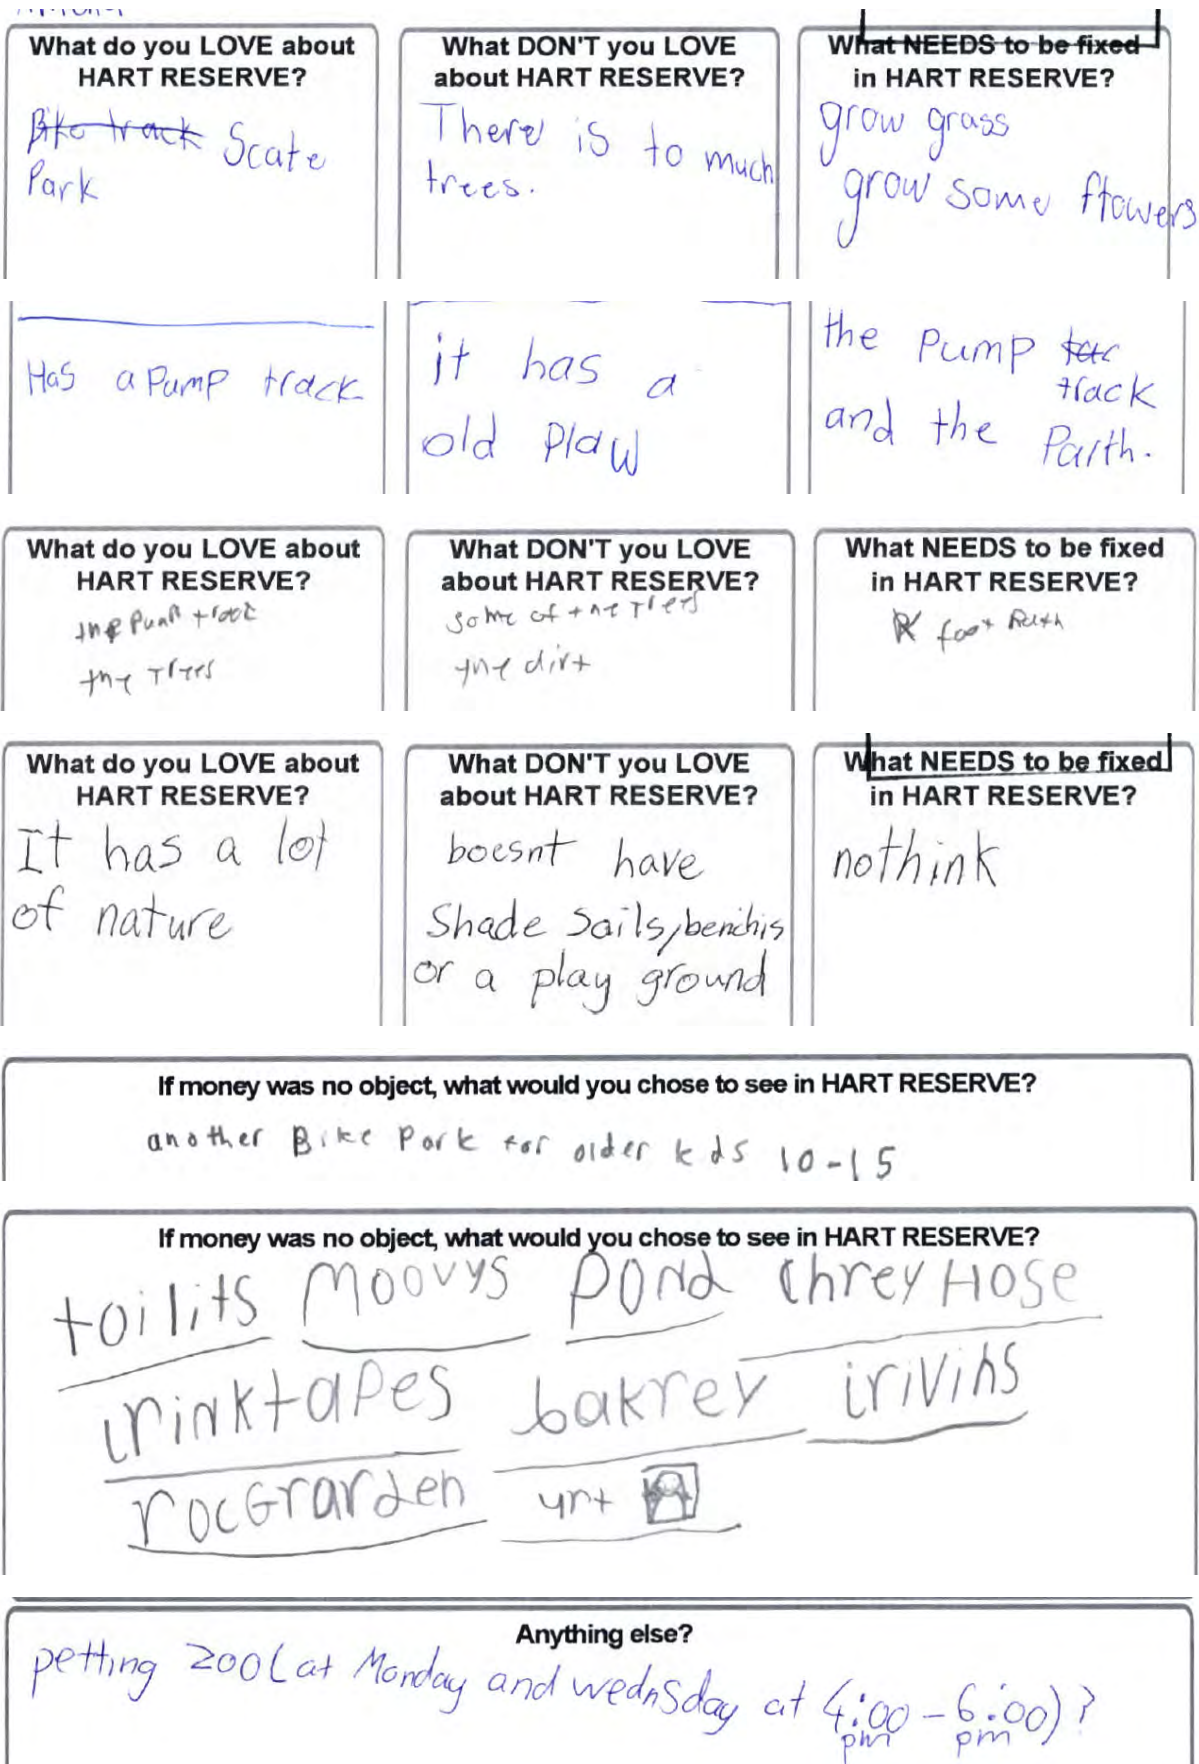 What do you LOVE about
HART RESERVE?
Bike track Scate
Park
What DON'T you LOVE
about HART RESERVE?
There is to much
trees.
What NEEDS to be fixed
in HART RESERVE?
grow grass
grow some flowers
Has a Pump track
it has a
old Plaw
the Pump
track
and the Parth.
What do you LOVE about
HART RESERVE?
the Pump track
the Trees
What DON'T you LOVE
about HART RESERVE?
some of the Trees
the dirt
What NEEDS to be fixed
in HART RESERVE?
foot Path
What do you LOVE about
HART RESERVE?
It has a lot
of nature
What DON'T you LOVE
about HART RESERVE?
boesnt have
Shade Sails/benchis
or a play ground
What NEEDS to be fixed
in HART RESERVE?
nothink
If money was no object, what would you chose to see in HART RESERVE?
another Bike Park for older kds 10-15
If money was no object, what would you chose to see in HART RESERVE?
toilits Moovys Pond chreyHose
rinktapes bakrey
rocGrarden yrt
Anything else?
petting zoo (at Monday and wednsday at 4:00 - 6:00)?
pm pm